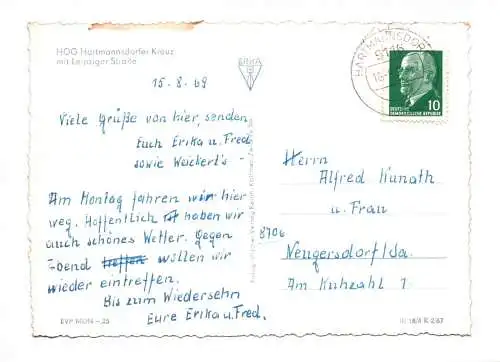 HOG Hartmannsdorfer Kreuz
mit Leipziger Straße
15.8.69
Viele Grüße von hier, senden
Euch Erika u. Fred
sowie Weickert's -
Am Montag fahren wir hier
weg. Hoffentlich ist haben wir
auch schönes Wetter. Gegen
Abend treffen wollen wir
wieder eintreffen.
Bis zum Wiedersehn
Eure Erika u. Fred.
EVP MDN -,25
HARTMANNSDORF
9116
DEUTSCHE
DEMOKRATISCHE REPUBLIK
10
Herrn
Alfred Kunath
u. Frau
8706
Neugersdorf/Sa.
Am Kuhzahl 1